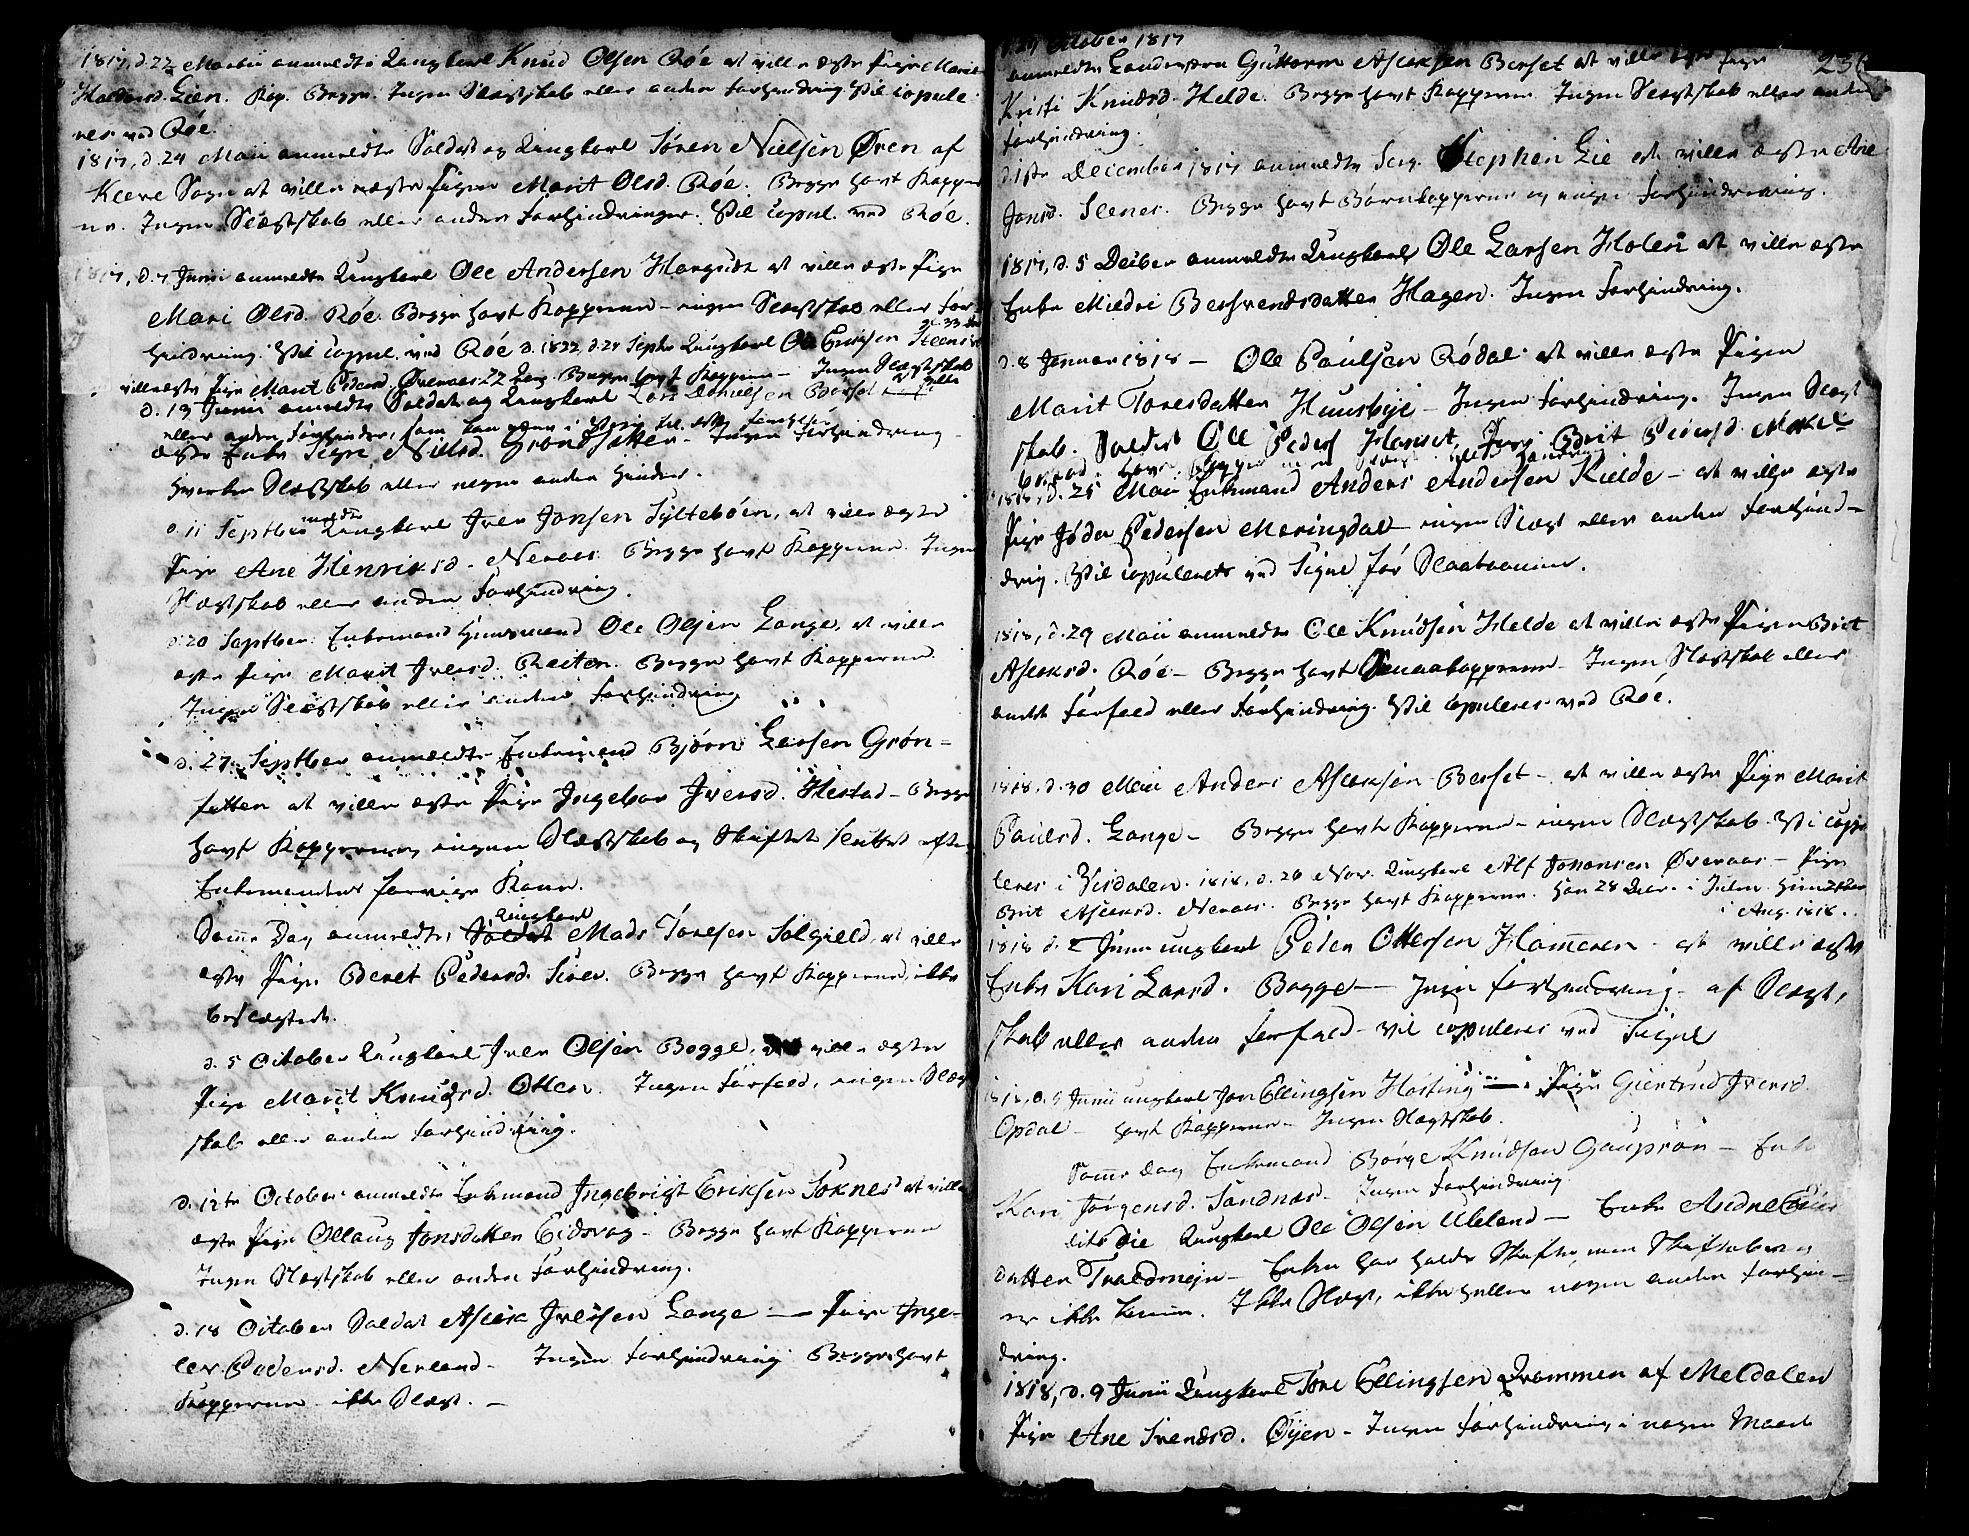 1817, d. 22 Martii anmeldte Ungkarl Knud Olsen Röe at ville ægte Pige Marit
Haldorsd. Lien. Kop. Begge. Ingen Slægtskab eller anden Forhindring. Vil copule-
res ved Röe.
1817, d. 24 Maii anmeldte Soldat og Ungkarl Sören Nielsen Ören af
Kleve Sogn at ville ægte Pigen Marit Olsd. Röe. Begge havt Kopper-
ne. Ingen Slægtskab eller anden Forhindringer. Vil copul. ved Röe.
1817, d. 7 Junii anmeldte Ungkarl Ole Andersen at ville ægte Pige
Mari Olsd. Röe. Begge havt Kopperne - ingen Slægtskab eller For-
hindring. Vil copul. ved Röe d. 1822, d. 28 Septbr Ungkarl Ole Erichsen 33 Aar
ville ægte Pige Marit Pedersd. Överaas 22 Aar. Begge havt Kopperne - Ingen Slægtskab
d. 13 Junii anmeldte Soldat og Ungkarl Lars Berset at ville
eller anden Forhinder, som kan være i
ægte Enke Signe Nielsd. Grönsetter - Ingen Forhindring
hverken Slægtskab eller nogen anden Hinder.
d. 11 Septber meldte Ungkarl Iver Jonsen Syltebôen, at ville ægte
Pige Ane Henriksd. Neraas. Begge havt Kopperne. Ingen
Slægtskab eller anden Forhindring.
d. 20 Septber. Enkemand Huusmand Ole Olsen Lange, at ville
ægte Pige Marit Iversd. Reiten. Begge havt Kopperne
Ingen Slægtskab eller anden Forhindring
d. 27 Septber anmeldte Enkemand Björn Larsen Grön-
setten at ville ægte Pige Ingebor Iversd. Hestad - Begge
havt Kopperne, ingen Slægtskab og Skiftet sluttet efter
Enkemandens forrige Kone.
Samme Dag anmeldte Soldat Ungkarl Mads Toresen Solgield, at ville
ægte Pige Beret Pedersd. Sirea. Begge havt Kopperne, ikke
beslægtede.
d. 5 October Ungkarl Iver Olsen Bogge, at ville ægte
Pige Marit Knudsd. Otten. Ingen Forfald, ingen Slægt-
skab eller anden Forhindring.
d. 12te October anmeldte Enkemand Ingebrigt Eriksen Söknes at ville
ægte Pige Ollaug Jonsdatter Eidsvag - Begge havt Kopperne
Ingen Slægtskab eller anden Forhindring.
d. 18 October Soldat Aslak Iversen Lange - Pige Inge-
lev Pedersd. Nerland - Ingen Forhindring. Begge havt
Kopperne - ikke Slægt. -
October 1817
anmeldte Landeværn Guttorm Aslaksen Berset at ville ægte Pige
Kristi Knudsd. Helde. Begge havt Kopperne. Ingen Slægtskab eller anden
Forhindring.
d. 1ste December 1817 anmeldte Serg. Stephen Lie at ville ægte Ane
Jonsd. Slenes. Begge havt Börnekopperne og ingen Forhindring.
1817, d. 5 Decber anmeldte Ungkarl Ole Larsen Holen at ville ægte
Enke Mildri Hagen. Ingen Forhindring.
d. 8 Januar 1818 - Ole Paulsen Rödal at ville ægte Pigen
Marit Toresdatter Huusbye - Ingen Forhindring. Ingen Slægt-
skab. Soldat Ole Peders. Hanset, Pige Brit Pedersd.
1818, d. 25 Maii Enkemand Anders Andersen Kielde - at ville ægte
Pige Jöda Pedersen Meringdal - ingen Slægt eller anden Forhind-
dring. Vil copuleres ved Signe för Slaataannen.
1818, d. 29 Maii anmeldte Ole Knudsen Helde at ville ægte Pigen Brit
Aslaksd. Röe - Begge havt Smaakopperne - Ingen Slægtskab eller
andet Forfald eller Forhindring. Vil copuleres ved Röe.
1818, d. 30 Maii Anders Aslaksen Berset - at ville ægte Pige Marit
Paulsd. Lange - Begge havt Kopperne - ingen Slægtskab. Vil copu-
leres i Visdalen. 1818, d. 26 Nov. Ungkarl Alf Johansen Överaas - Pige
Brit Aslaksd. Neraas. Begge havt Kopperne. Han 28 Aar i Julen. Hun 22 Aar
i Aug. 1818.
1818 d. 2 Junii ungkarl Peder Ottersen Hameren - at ville ægte
Enke Kari Larsd. Bogge - Ingen Forhindring af Slægt-
skab eller anden Forfald - vil copuleres ved Signe
1818, d. 9 Junii ungkarl Jon Ellingsen Hosting - Pige Giertrud Iversd.
Opdal - havt Kopperne - Ingen Slægtskab.
Samme Dag Enkemand Börge Knudsen Gauprön - Enke
Kari Jörgensd. Sandnes - Ingen Forhindring.
dito Die Ungkarl Ole Olsen Uleland - Enke Andne
datter Trældmyr - Enken har holdt Skifte, men Skiftebrev
er ikke kommen. Ikke Slægt, ikke heller nogen anden Forhin-
dring.
1818, d. 9 Junii Ungkarl Tore Ellingsen Drommen af Meldalen
Pige Ane Svendsd. Öyen - Ingen Forhindring i nogen Maade